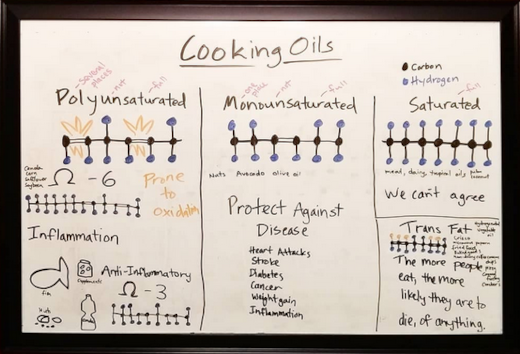 Cooking Oils
Carbon
Hydrogen
several places
not
full
Polyunsaturated
Canola
Corn
Sunflower
Soybean
Ω - 6
Prone
to
Oxidation
Inflammation
Anti-Inflammatory
Ω - 3
one place
not
full
Monounsaturated
Nuts Avocado olive oil
Protect Against
Disease
Heart Attacks
Stroke
Diabetes
Cancer
Weight gain
Inflammation
full
Saturated
meat, dairy, tropical oils
palm
coconut
We can't agree
Trans Fat
Crisco
The more people
eat, the more
likely they are to
die, of anything.